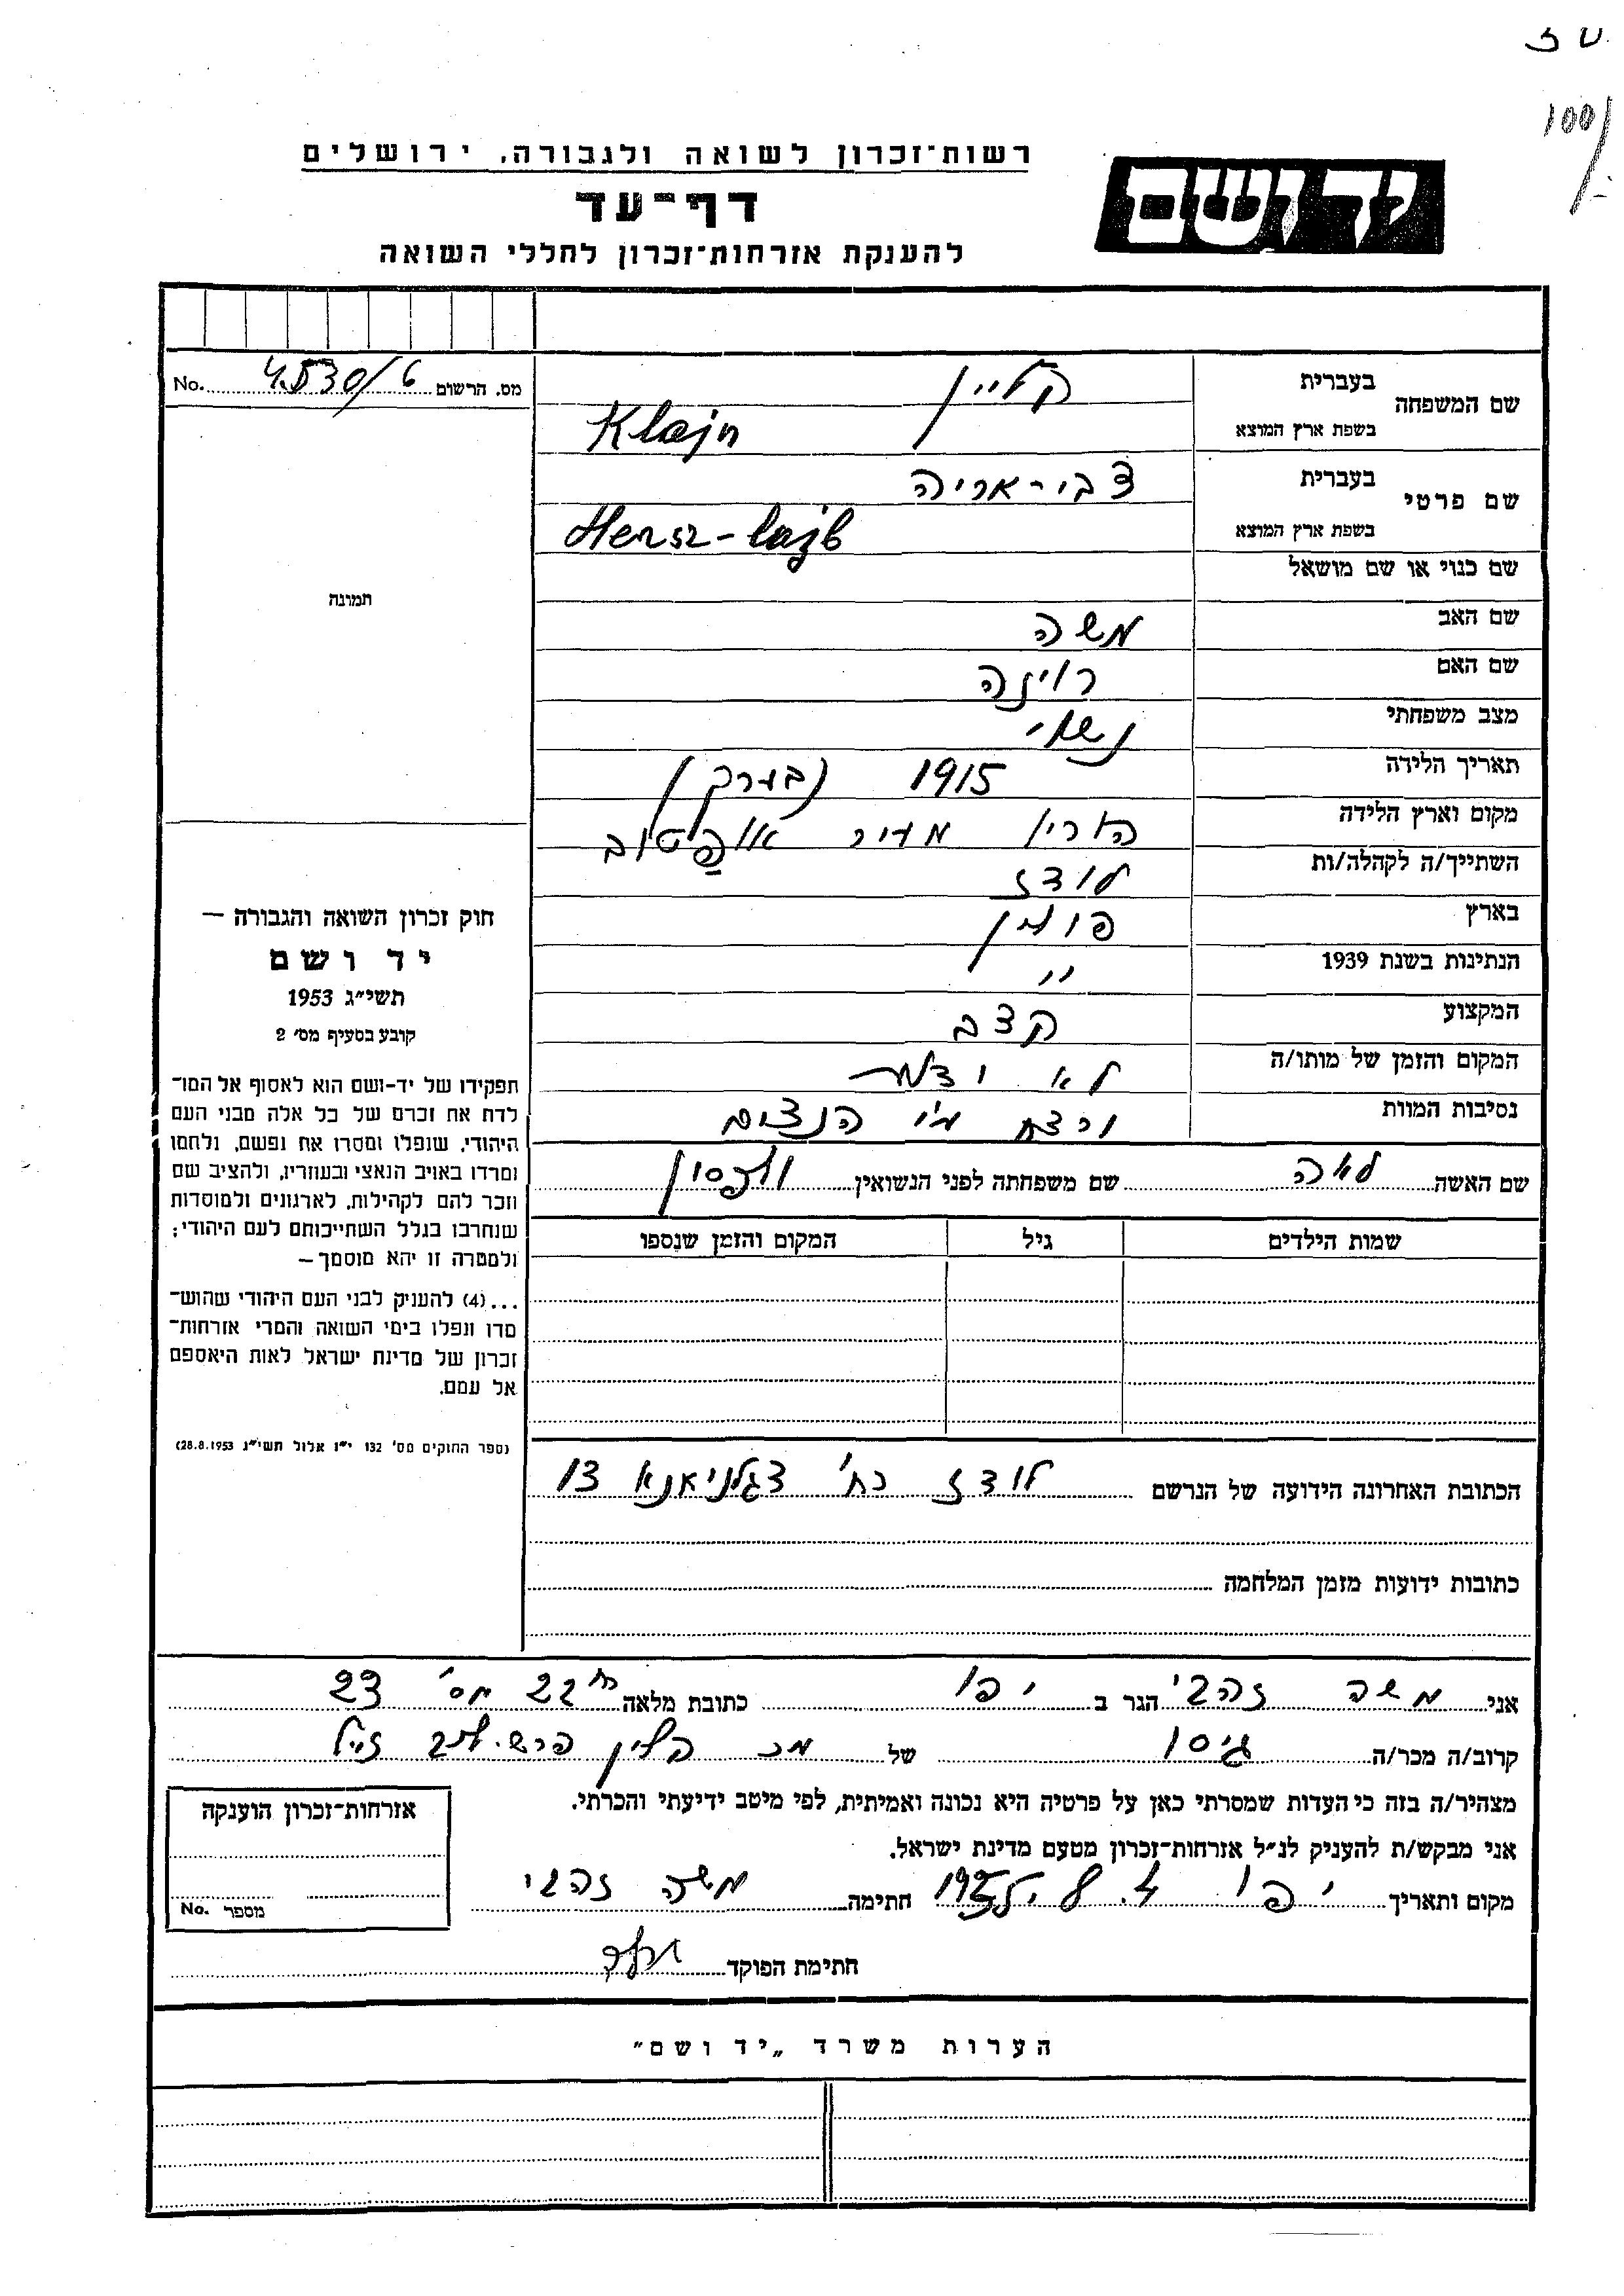 100/-
רשות־זכרון לשואה ולגבורה, ירושלים
יד ושם
דף־עד
להענקת אזרחות־זכרון לחללי השואה
מס. הרשום 4530/6 No.
שם המשפחה
בעברית קליין
בשפת ארץ המוצא Klajn
שם פרטי
בעברית צבי - אריה
בשפת ארץ המוצא Hersz - Lajb
שם כנוי או שם מושאל
שם האב משה
שם האם רוינה
מצב משפחתי נשוי
תאריך הלידה 1915 (בערך)
מקום וארץ הלידה
השתייך/ה לקהלה/ות לודז
בארץ פולין
הנתינות בשנת 1939 "
המקצוע קצב
המקום והזמן של מותו/ה לא
נסיבות המוות הנצים
שם האשה לאה שם משפחתה לפני הנשואין
שמות הילדים גיל המקום והזמן שנספו
הכתובת האחרונה הידועה של הנרשם לודז רח' צגלניאנא 13
כתובות ידועות מזמן המלחמה
תמונה
חוק זכרון השואה והגבורה —
יד ושם
תשי״ג 1953
קובע בסעיף מס׳ 2
תפקידו של יד-ושם הוא לאסוף אל המו־
לדת את זכרם של כל אלה מבני העם
היהודי, שנפלו ומסרו את נפשם, נלחמו
ומרדו באויב הנאצי ובעוזריו, ולהציב שם
וזכר להם לקהילות, לארגונים ולמוסדות
שנחרבו בגלל השתייכותם לעם היהודי;
ולמטרה זו יהא מוסמך —
...(4) להעניק לבני העם היהודי שהוש־
מדו ונפלו בימי השואה והמרי אזרחות־
זכרון של מדינת ישראל לאות היאספם
אל עמם.
(ספר החוקים מס׳ 132 י״ז אלול תשי״ג 28.8.1953)
אני משה זהבי הגר ב יפו כתובת מלאה 22 מס' 23
קרוב/ה מכר/ה גיסו של
מצהיר/ה בזה כי העדות שמסרתי כאן על פרטיה היא נכונה ואמיתית, לפי מיטב ידיעתי והכרתי.
אני מבקש/ת להעניק לנ״ל אזרחות־זכרון מטעם מדינת ישראל.
מקום ותאריך יפו חתימה משה זהבי
חתימת הפוקד
אזרחות־זכרון הוענקה
מספר No.
הערות משרד „יד ושם״